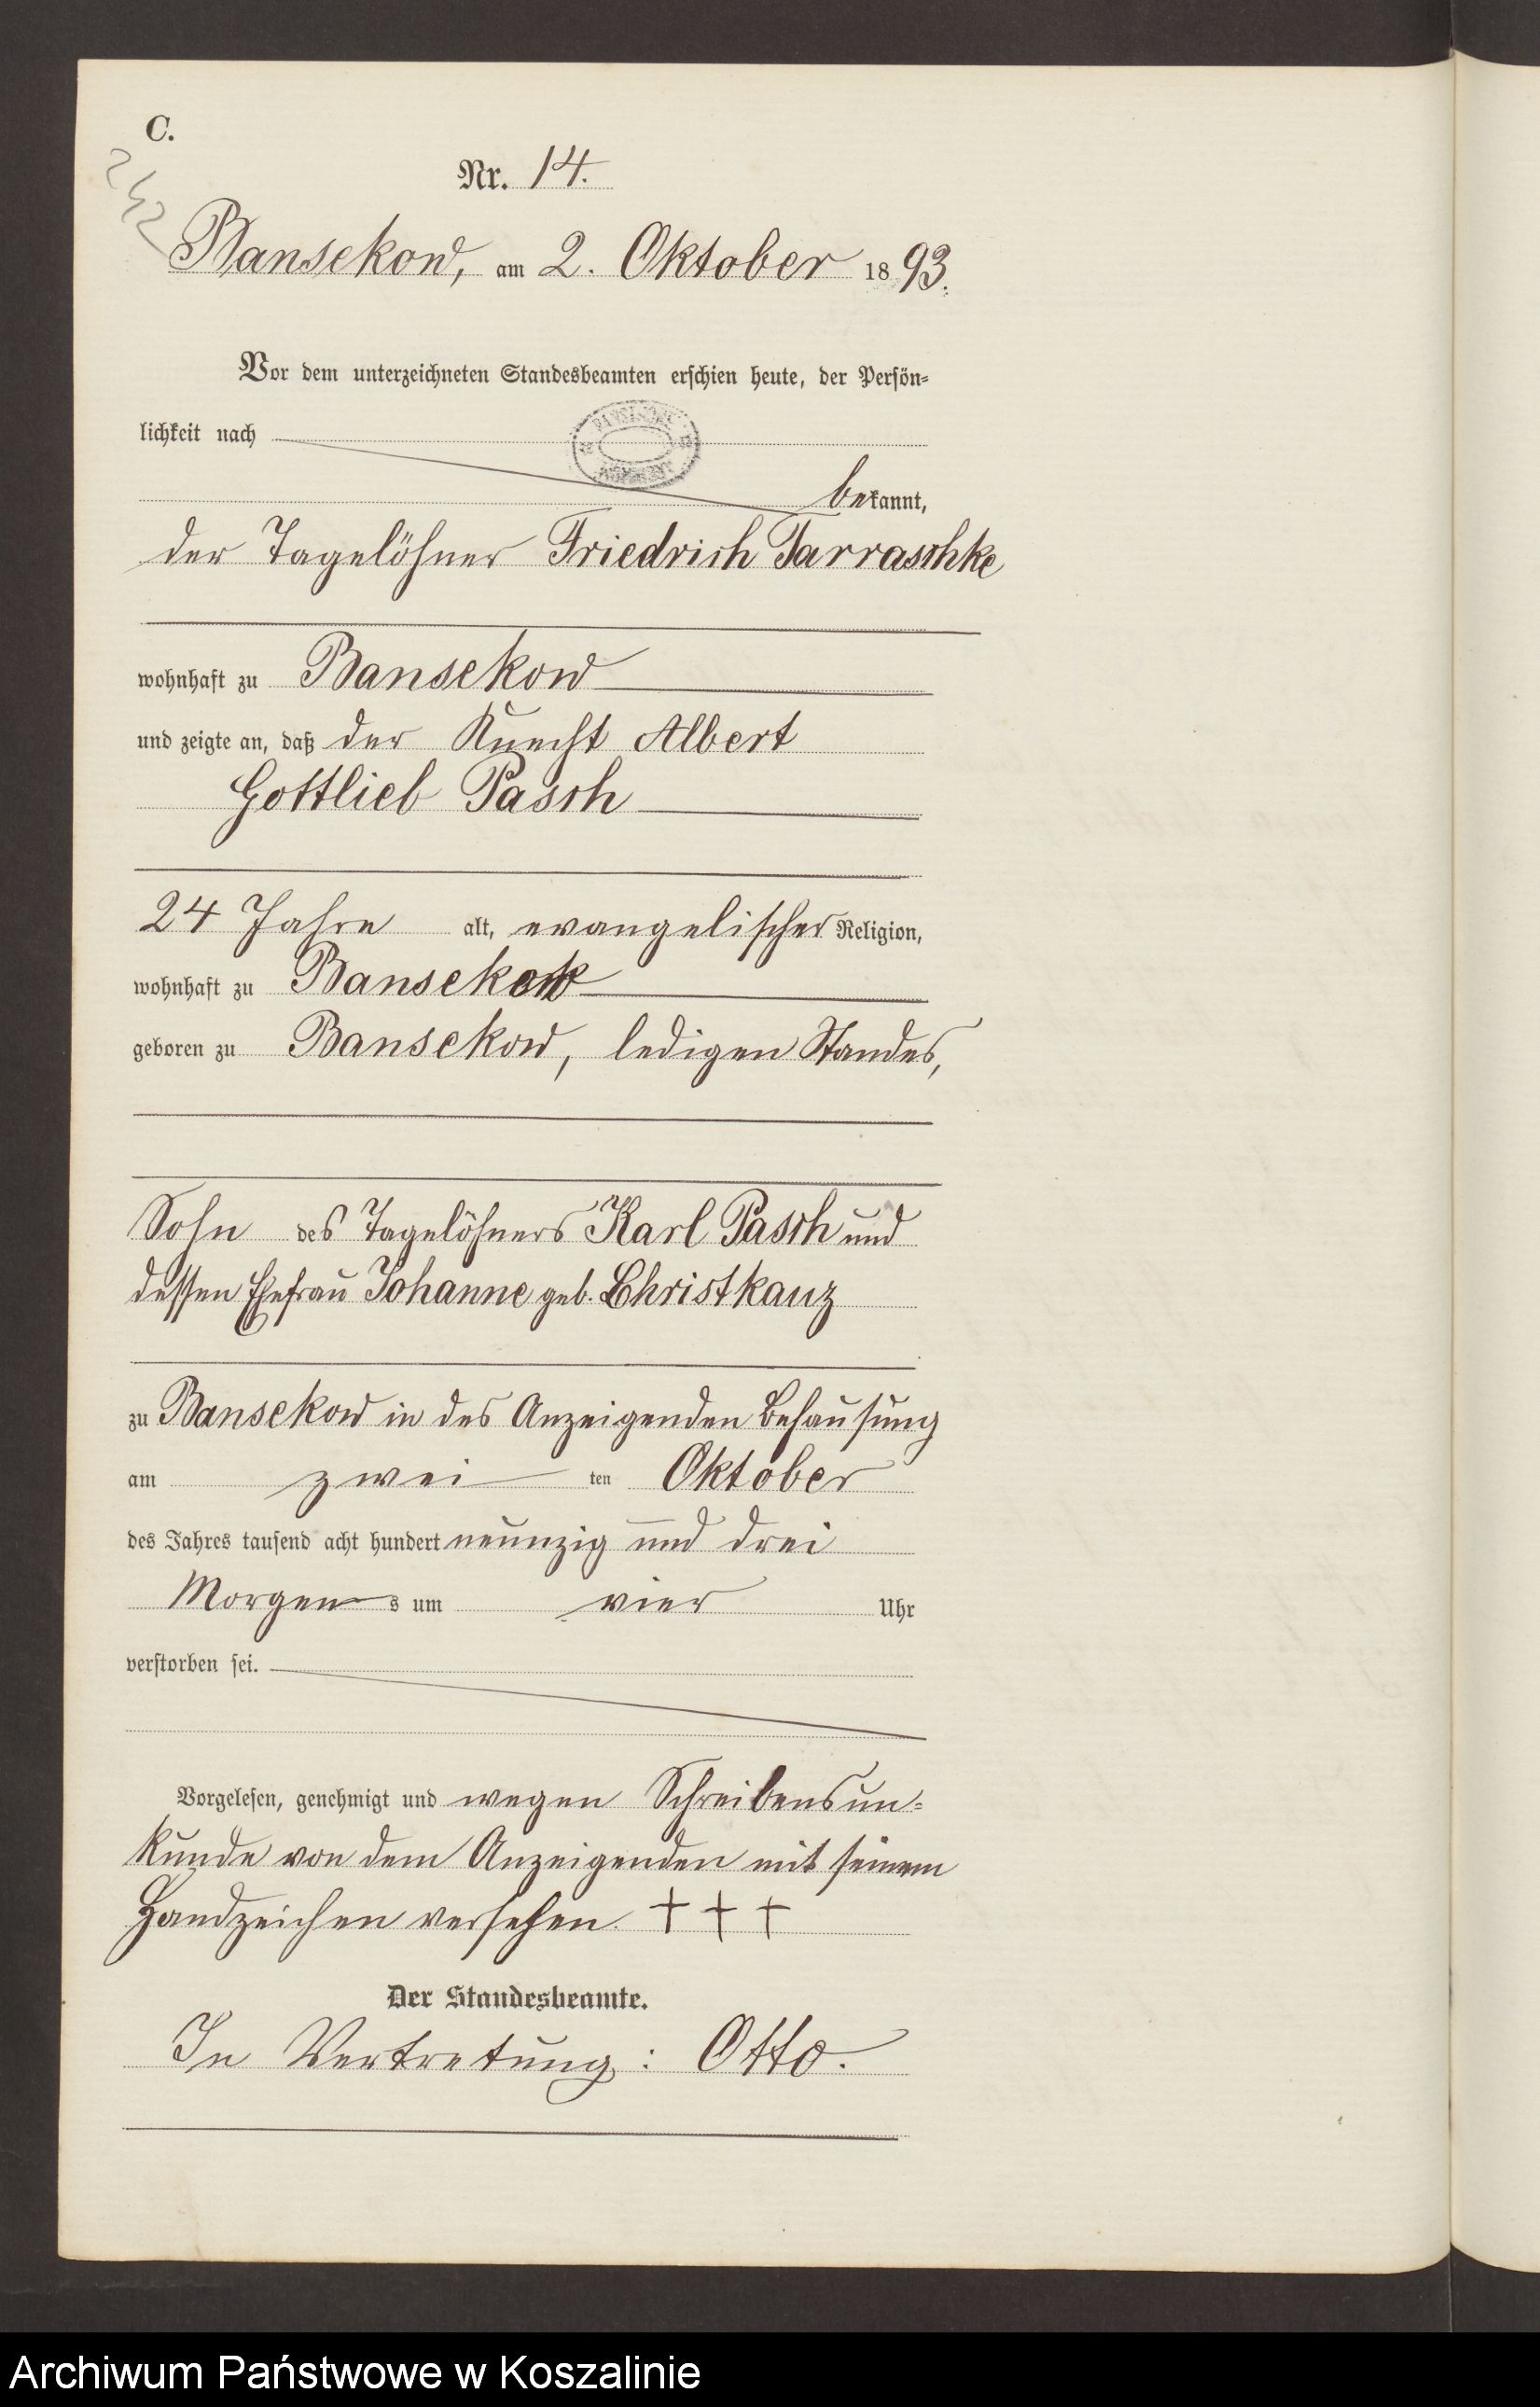 C.
242
Nr. 14.
Bansekow, am 2. Oktober 1893.
Vor dem unterzeichneten Standesbeamten erschien heute, der Persön-
lichkeit nach
bekannt,
der Tagelöhner Friedrich Tarraschke
wohnhaft zu Bansekow
und zeigte an, daß der Knecht Albert
Gottlieb Pasch
24 Jahre alt, evangelischer Religion,
wohnhaft zu Bansekow
geboren zu Bansekow, ledigen Standes,
Sohn des Tagelöhners Karl Pasch und
dessen Ehefrau Johanne geb. Christkauz
zu Bansekow in des Anzeigenden Behausung
am zwei ten Oktober
des Jahres tausend acht hundert neunzig und drei
Morgens um vier Uhr
verstorben sei.
Vorgelesen, genehmigt und wegen Schreibensun-
kunde von dem Anzeigenden mit seinem
Handzeichen versehen. + + +
Der Standesbeamte.
In Vertretung: Otto.
Archiwum Państwowe w Koszalinie